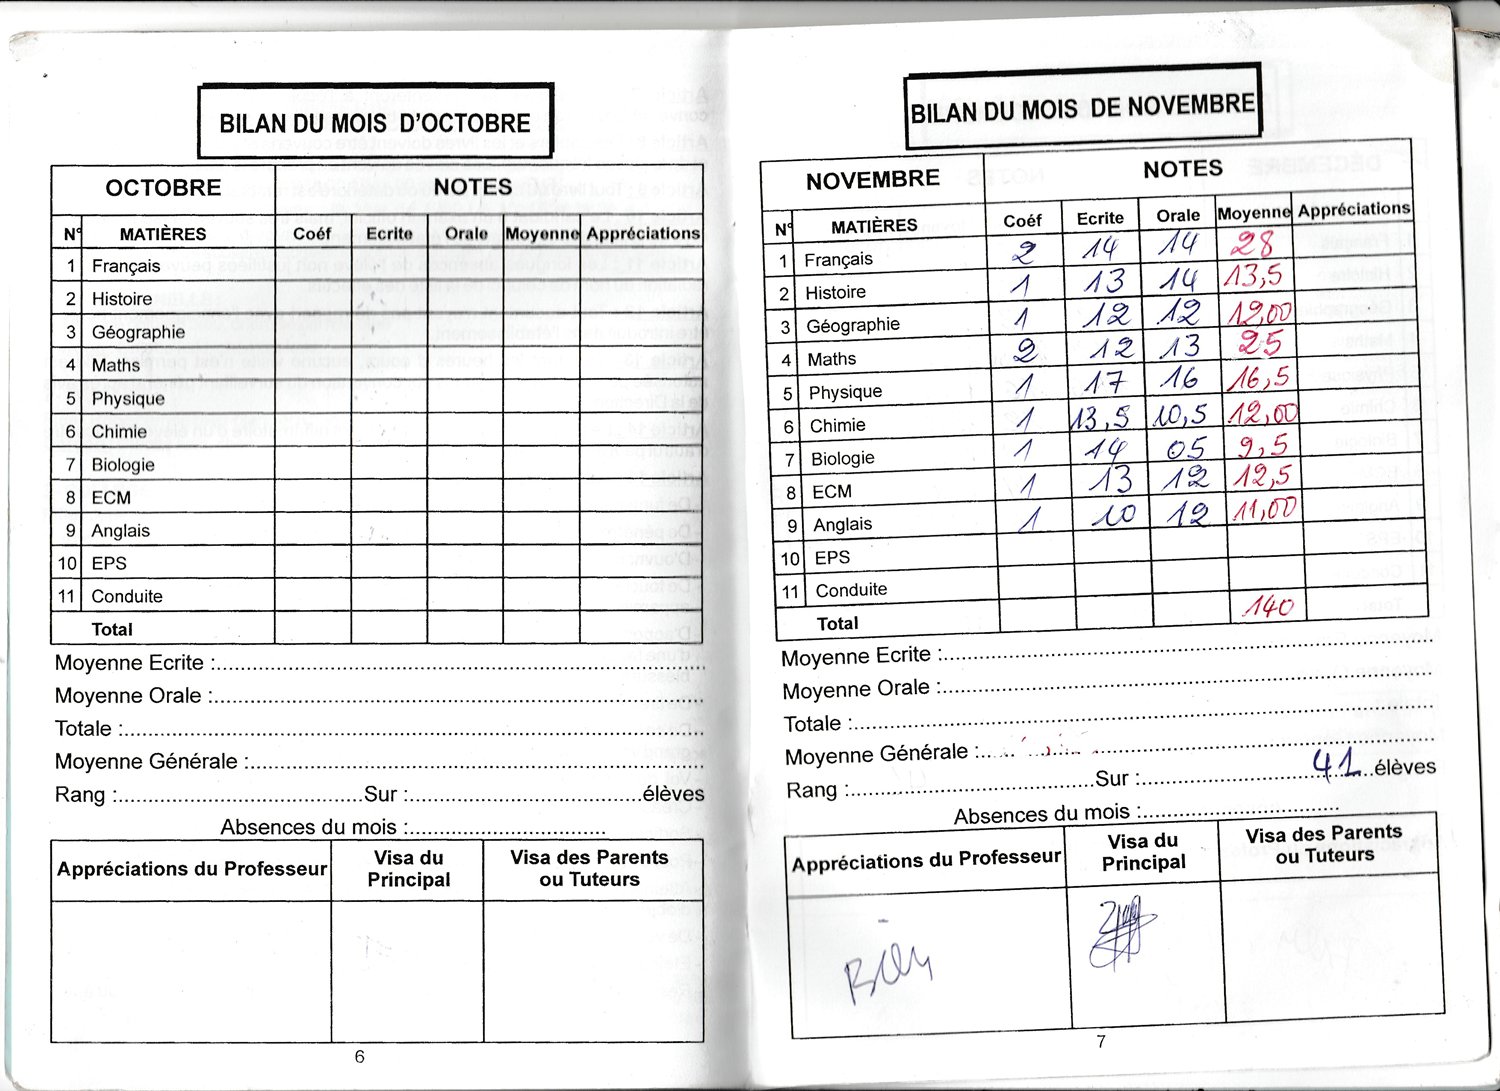 BILAN DU MOIS D'OCTOBRE
OCTOBRE NOTES
N° MATIÈRES Coéf Ecrite Orale Moyenne Appréciations
1 Français
2 Histoire
3 Géographie
4 Maths
5 Physique
6 Chimie
7 Biologie
8 ECM
9 Anglais
10 EPS
11 Conduite
Total
Moyenne Ecrite :
Moyenne Orale :
Totale :
Moyenne Générale :
Rang : Sur : élèves
Absences du mois :
Appréciations du Professeur Visa du Principal Visa des Parents ou Tuteurs
6
BILAN DU MOIS DE NOVEMBRE
NOVEMBRE NOTES
N° MATIÈRES Coéf Ecrite Orale Moyenne Appréciations
1 Français 2 14 14 28
2 Histoire 1 13 14 13,5
3 Géographie 1 12 12 12,00
4 Maths 2 12 13 25
5 Physique 1 17 16 16,5
6 Chimie 1 13,5 10,5 12,00
7 Biologie 1 14 05 9,5
8 ECM 1 13 12 12,5
9 Anglais 1 10 12 11,00
10 EPS
11 Conduite
Total 140
Moyenne Ecrite :
Moyenne Orale :
Totale :
Moyenne Générale :
Rang : Sur : 41 élèves
Absences du mois :
Appréciations du Professeur Visa du Principal Visa des Parents ou Tuteurs
7